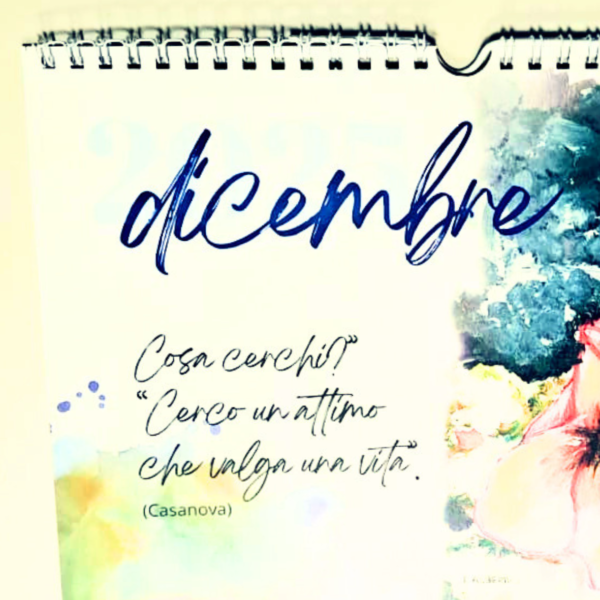 dicembre
Cosa cerchi?"
"Cerco un attimo
che valga una vita".
(Casanova)